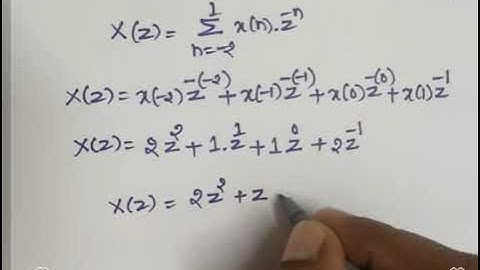 X(z) = 1 Σ n=-2 x(n).z^-n
X(z) = x(-2) z^-(-2) + x(-1) z^-(-1) + x(0) z^-(0) + x(1) z^-1
X(z) = 2 z^2 + 1. z^1 + 1 z^0 + 2 z^-1
X(z) = 2z^2 + z